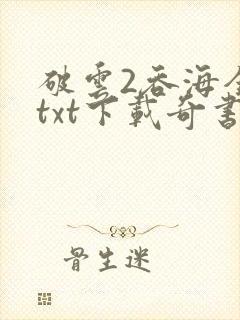 破雲2吞海全
txt下載奇書
骨生迷